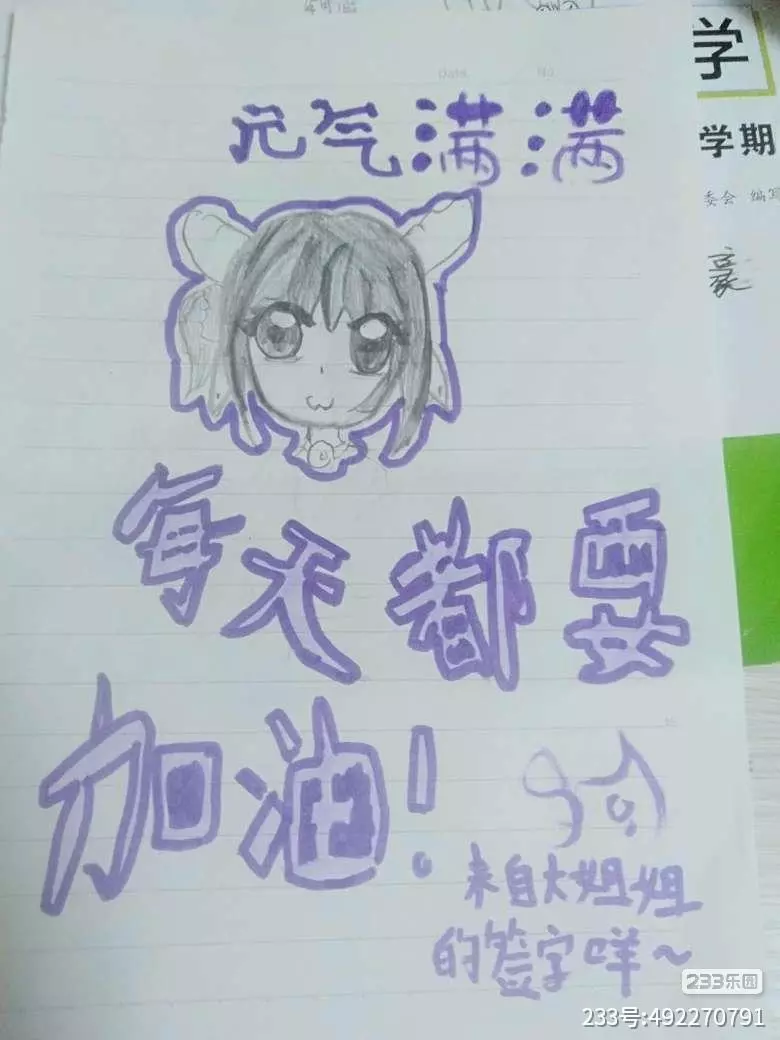 Date
No
学
元气满满
学期
委会 编写
每天都要
加油!
来自大姐姐
的签字咩~
233乐园
233号:492270791